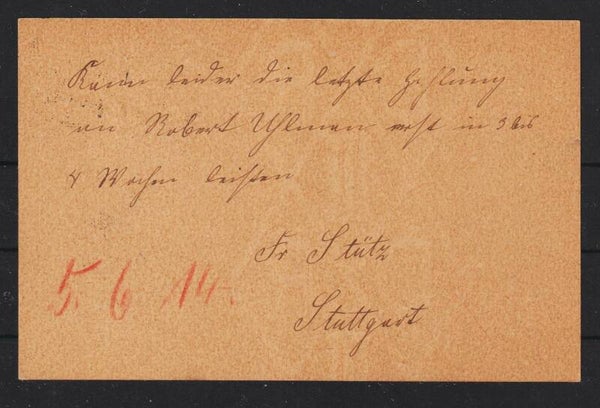 Kann leider die letzte Zahlung
an Robert Uhlman erst in 3 bis
4 Wochen leisten
Fr Stütz
Stuttgart
5. 6. 14.